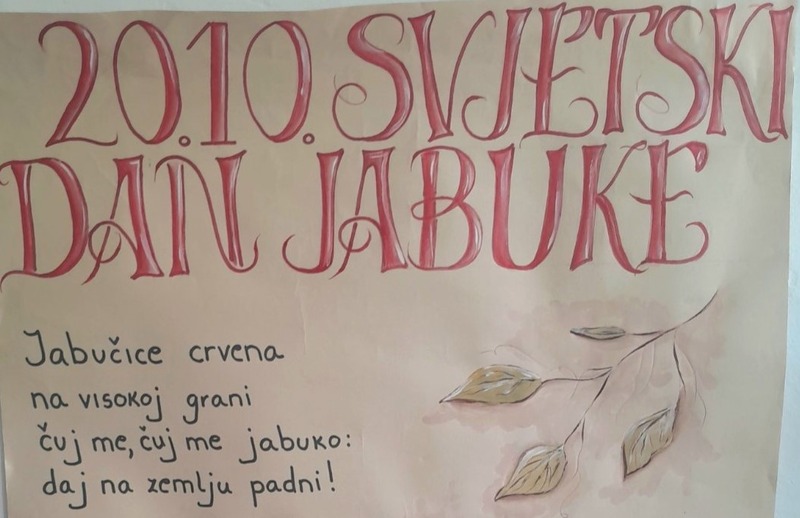 20.10. SVJETSKI
DAN JABUKE
Jabučice crvena
na visokoj grani
čuj me, čuj me jabuko:
daj na zemlju padni!